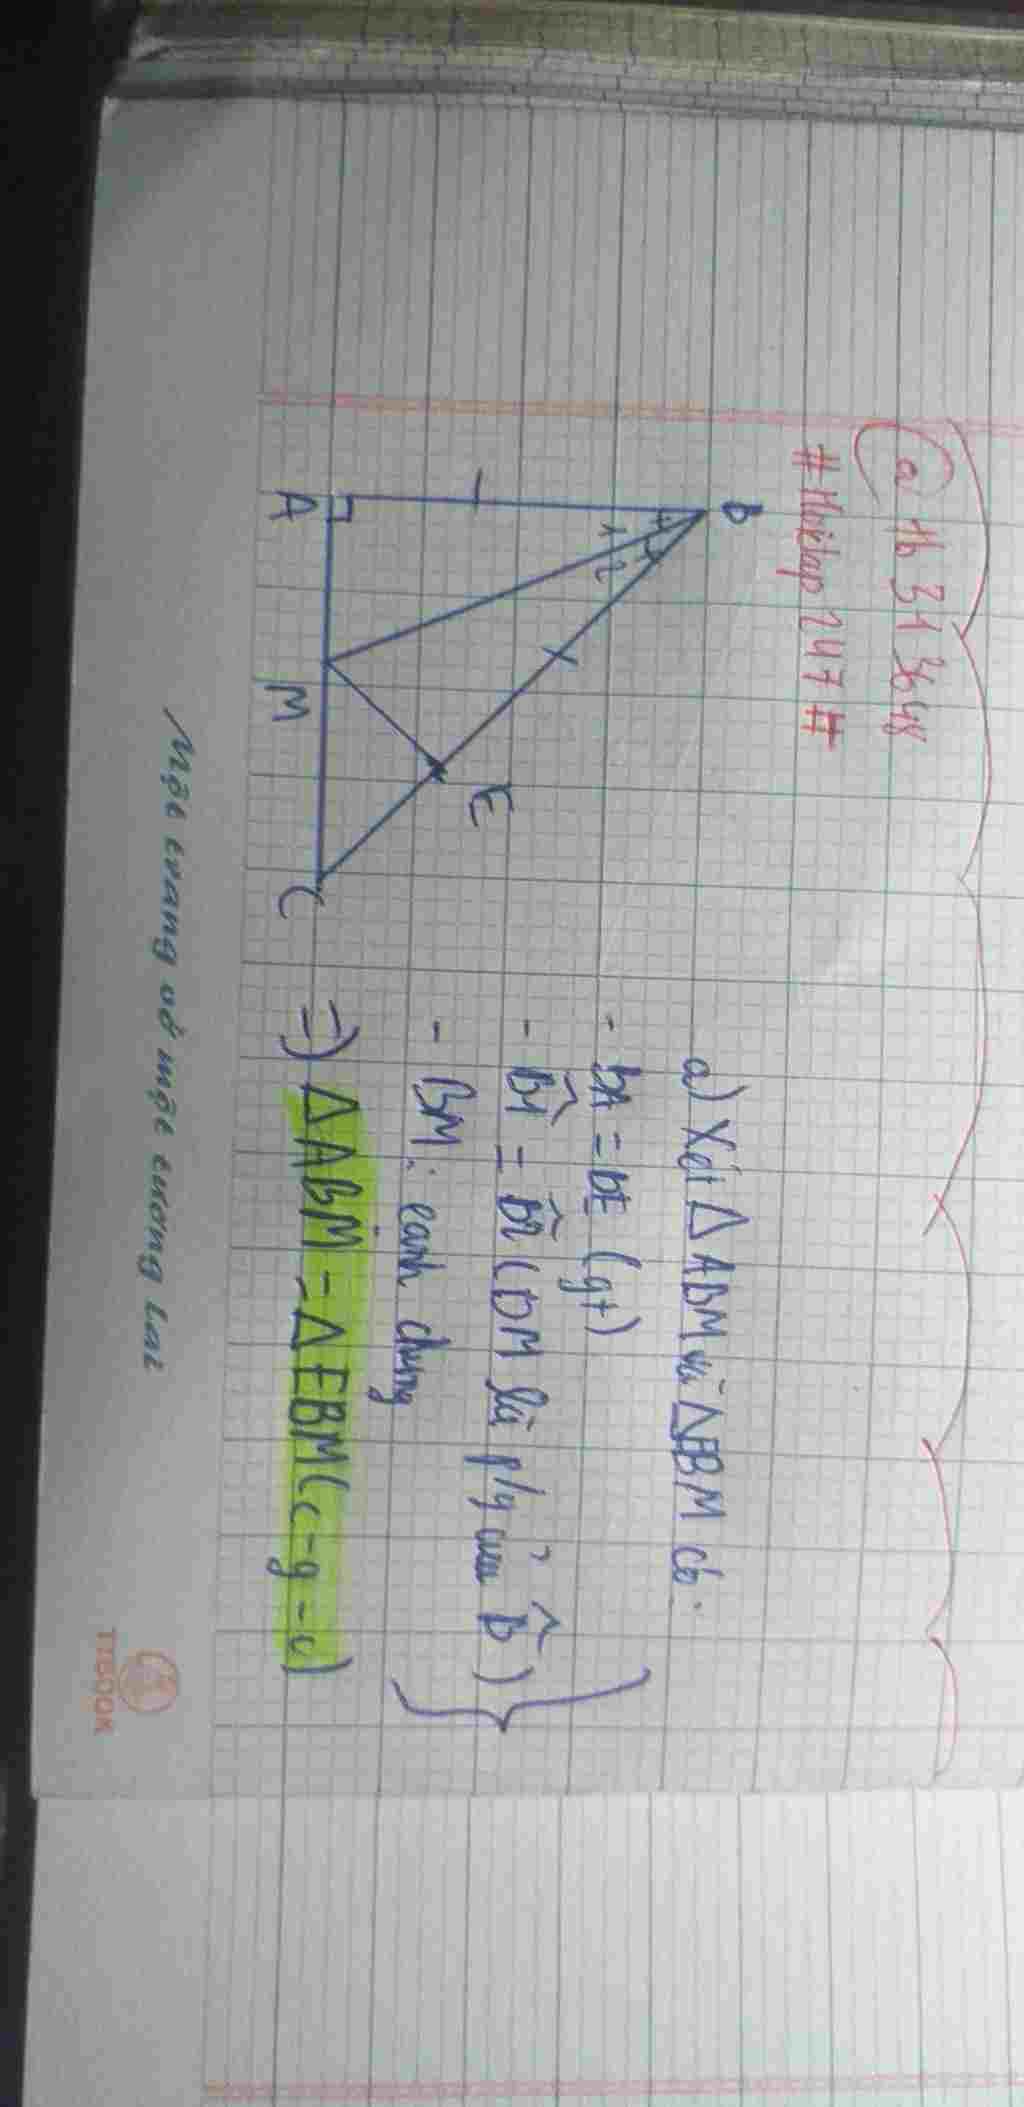 #Hoidap247#
B
1 2
A
M
E
C
a) Xét △ABM và △EBM có:
- BA = BE (gt)
- B̂1 = B̂2 (BM là p/g của B̂)
- BM: cạnh chung
=) △ABM = △EBM (c-g-c)
Một trang vở một tương lai
TIBOOK